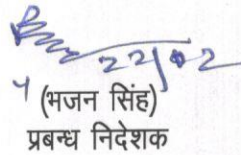 22/02
(भजन सिंह)
प्रबन्ध निदेशक